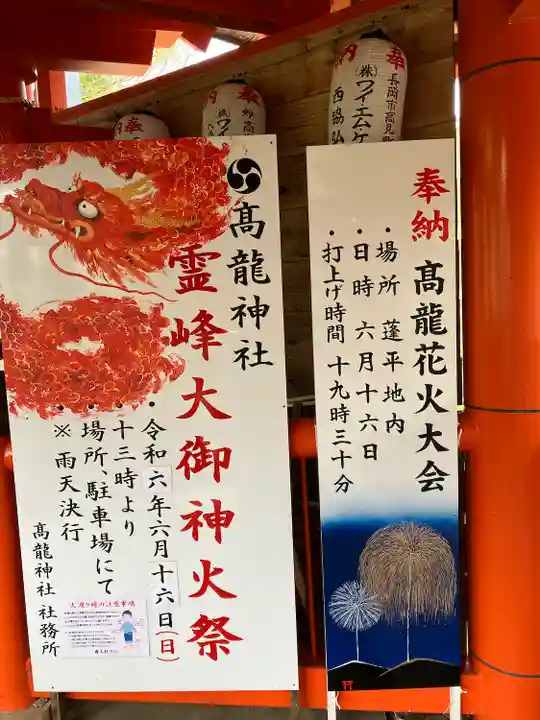 奉納
高龍花火大会
・場所 蓬平地内
・日時 六月十六日
・打上げ時間 十九時三十分
髙龍神社
霊峰大御神火祭
・令和六年六月十六日(日)
・十三時より
・場所、駐車場にて
※雨天決行
髙龍神社 社務所
火渡り時の注意事項
奉納
長岡市高見町
(株)ワイエム・ケ
西脇弘
奉
妙高
(株)ワイ
奉